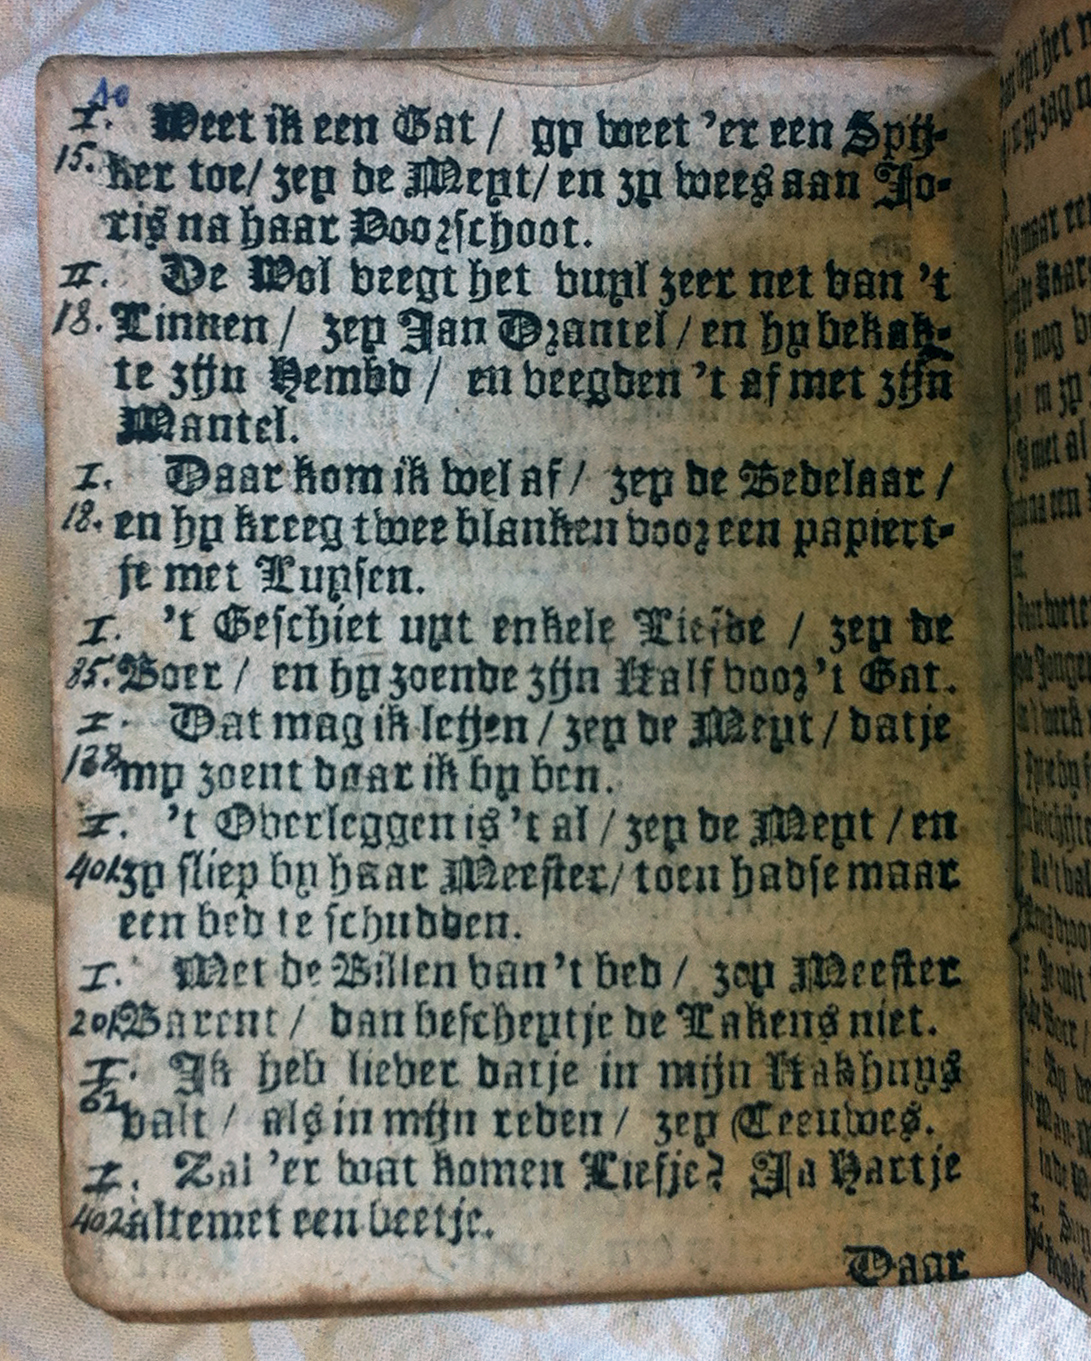 10
I. Weet ik een Gat / gy weet 'er een Spij-
15. ker toe / zey de Meyt / en zy wees aan Jo-
ris na haar Voorschoot.
II. De Wol veegt het vuyl zeer net van 't
18. Linnen / zey Jan Drantel / en hy bekak-
te zijn Hembd / en veegden 't af met zijn
Mantel.
I. Daar kom ik wel af / zey de Bedelaar /
18. en hy kreeg twee blanken voor een papiert-
je met Luysen.
I. 't Geschiet uyt enkele Liefde / zey de
85. Boer / en hy zoende zijn Kalf voor 't Gat.
I. Dat mag ik lejen / zey de Meyt / datje
my zoent daar ik by ben.
I. 't Overleggen is 't al / zey de Meyt / en
401. zy sliep by haar Meester / toen hadse maar
een bed te schudden.
I. Met de Billen van 't bed / zey Meester
201. Barent / dan bescheytje de Lakens niet.
I. Ik heb liever datje in mijn Kakhuys
62. valt / als in mijn reden / zey Teeuwes.
I. Zal 'er wat komen Liefje? Ja Hartje
402. altemet een beetje.
Daar